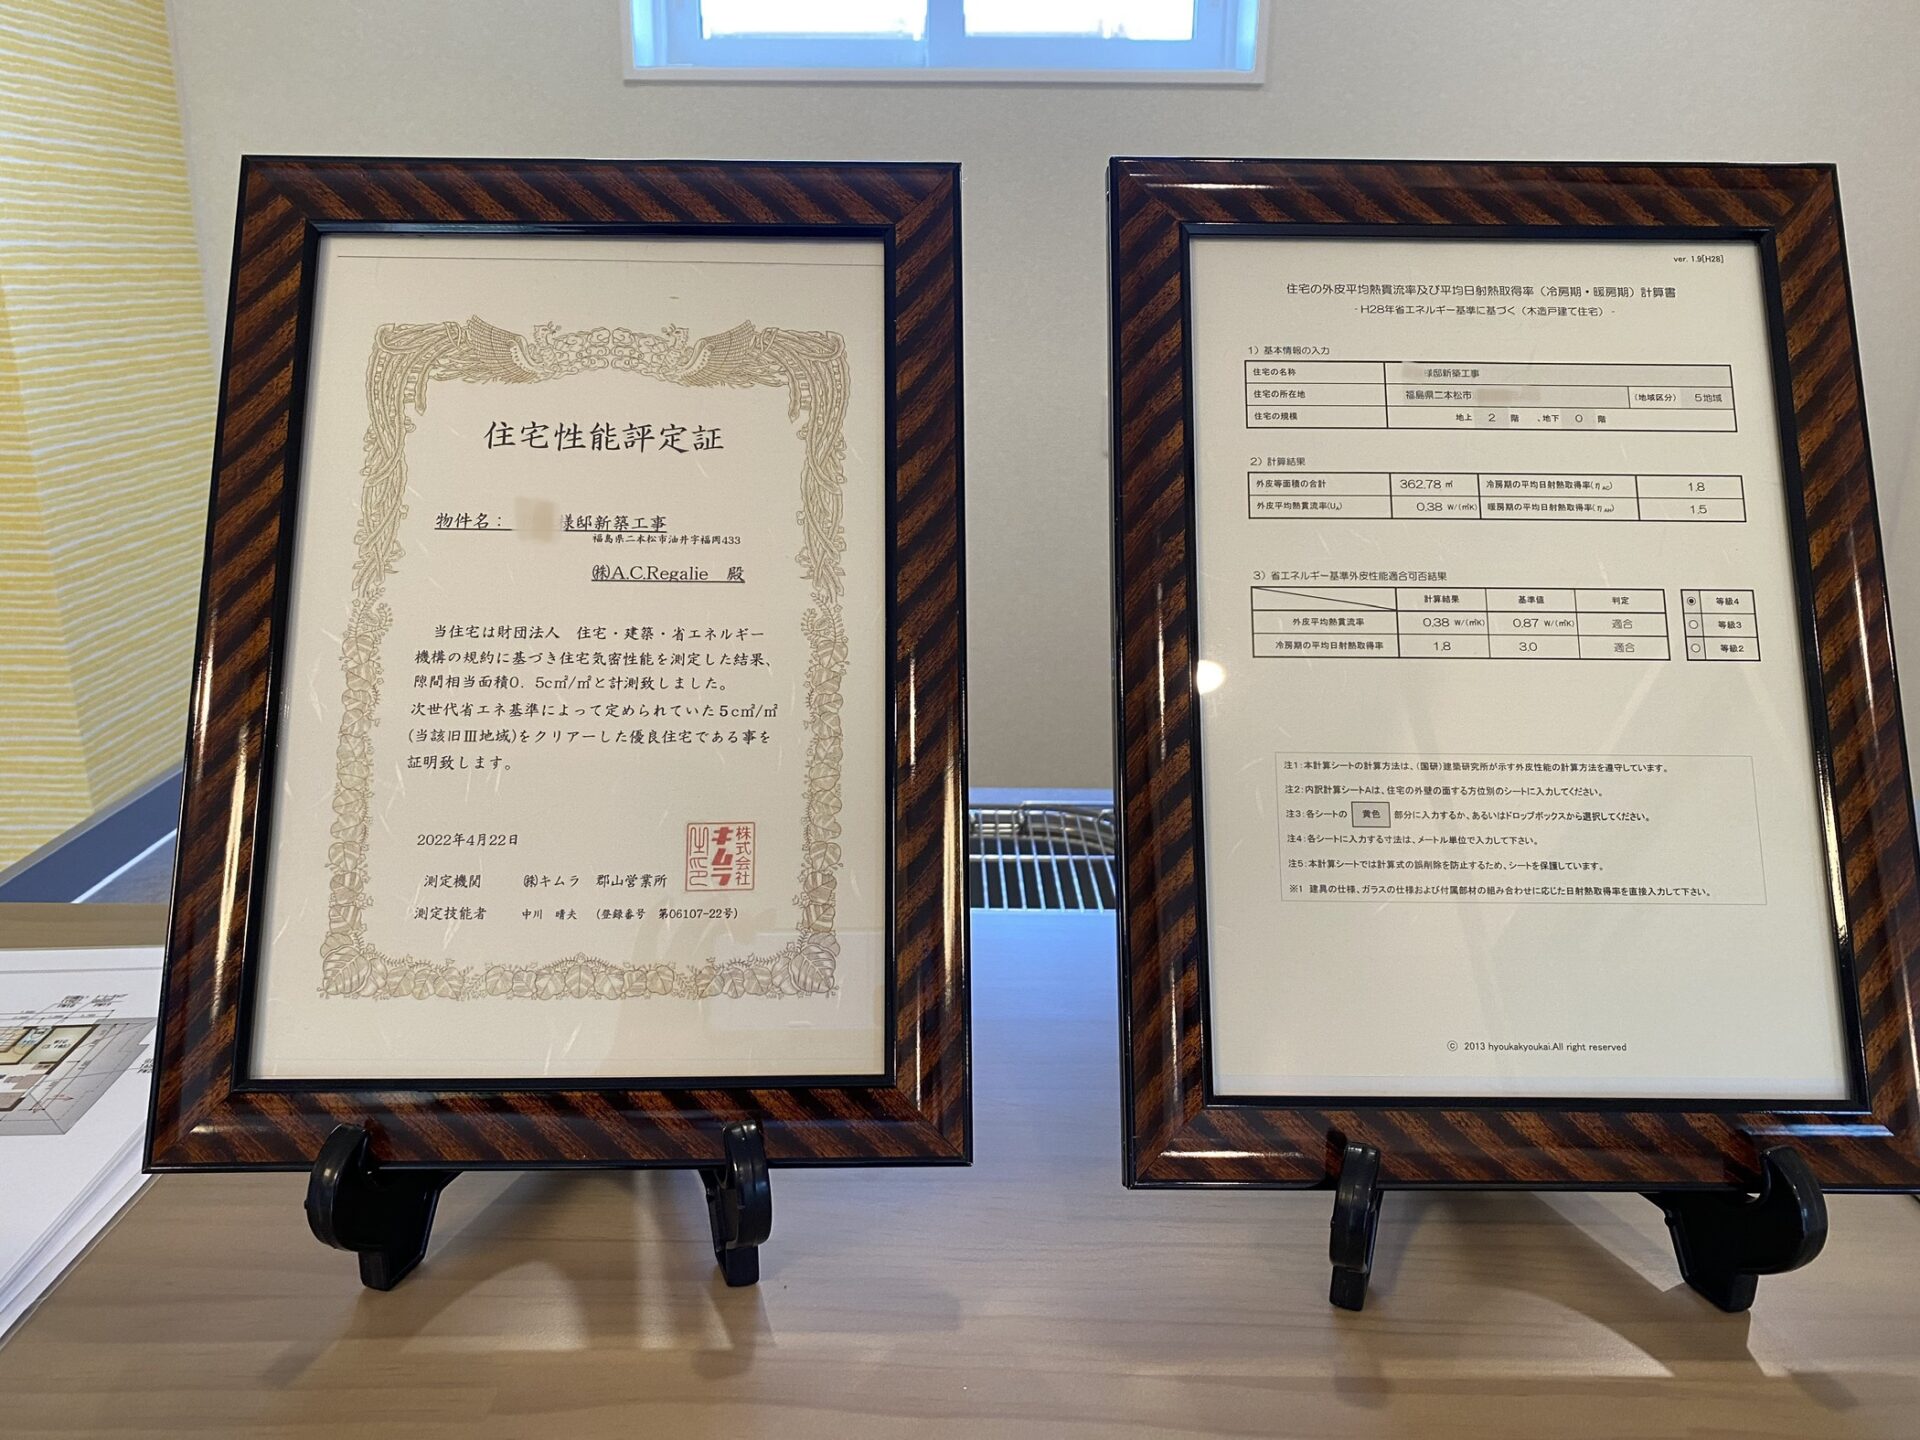 住宅性能評定証
物件名： 様邸新築工事
福島県二本松市油井字福岡433
㈱A.C.Regalie 殿
当住宅は財団法人 住宅・建築・省エネルギー
機構の規約に基づき住宅気密性能を測定した結果、
隙間相当面積0. 5c㎡/㎡と計測致しました。
次世代省エネ基準によって定められていた5c㎡/㎡
(当該旧Ⅲ地域)をクリアーした優良住宅である事を
証明致します。
2022年4月22日
株式会社
キムラ
測定機関 ㈱キムラ 郡山営業所
測定技能者 中川 晴夫 （登録番号 第06107-22号）
ver. 1.9[H28]
住宅の外皮平均熱貫流率及び平均日射熱取得率（冷房期・暖房期）計算書
- H28年省エネルギー基準に基づく（木造戸建て住宅） -
1）基本情報の入力
住宅の名称 様邸新築工事
住宅の所在地 福島県二本松市 （地域区分） 5地域
住宅の規模 地上 2 階 、地下 0 階
2）計算結果
外皮等面積の合計 362.78 ㎡ 冷房期の平均日射熱取得率(ηAC) 1.8
外皮平均熱貫流率(UA) 0.38 W/(㎡K) 暖房期の平均日射熱取得率(ηAH) 1.5
3）省エネルギー基準外皮性能適合可否結果
計算結果 基準値 判定
外皮平均熱貫流率 0.38 W/(㎡K) 0.87 W/(㎡K) 適合
冷房期の平均日射熱取得率 1.8 3.0 適合
等級4
等級3
等級2
注1：本計算シートの計算方法は、（国研）建築研究所が示す外皮性能の計算方法を遵守しています。
注2：内訳計算シートAは、住宅の外壁の面する方位別のシートに入力してください。
注3：各シートの 黄色 部分に入力するか、あるいはドロップボックスから選択してください。
注4：各シートに入力する寸法は、メートル単位で入力して下さい。
注5：本計算シートでは計算式の誤削除を防止するため、シートを保護しています。
※1 建具の仕様、ガラスの仕様および付属部材の組み合わせに応じた日射熱取得率を直接入力して下さい。
© 2013 hyoukakyoukai.All right reserved